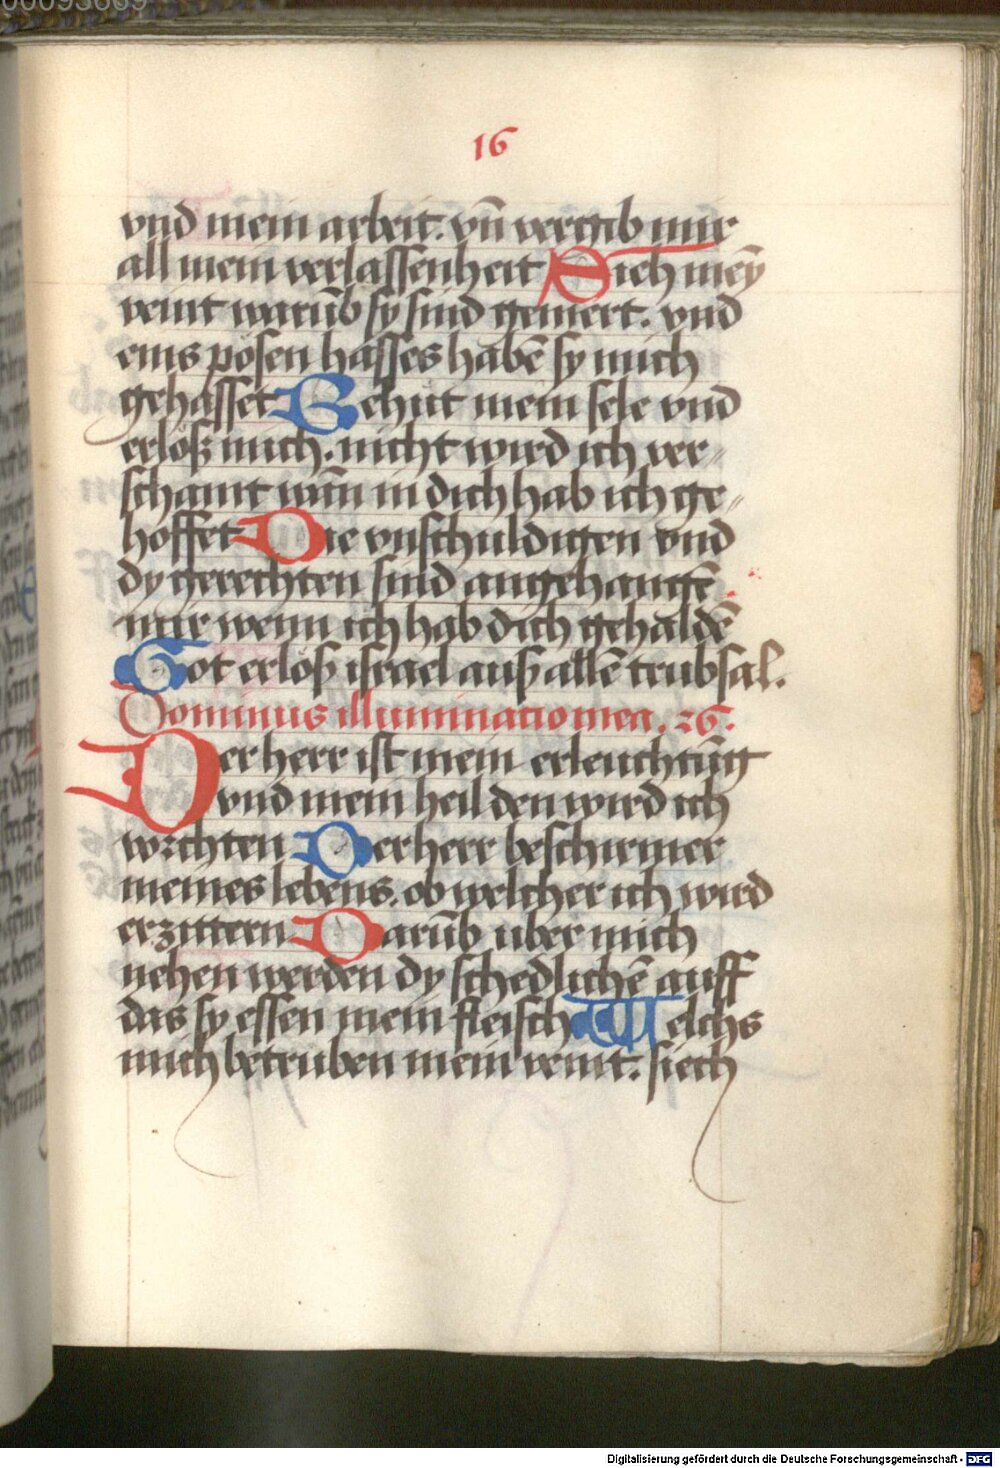 16
vnd mein arbeit. vn̄ vergib mir
all mein verlassenheit Sich mey̅
veint warūb sy sind gemert. vnd
eins pösen hasses habē sy mich
gehasset Behüt mein sele vnd
erlöß mich. nicht wird ich ver⸗
schamt wān in dich hab ich ge⸗
hoffet Die vnschuldigen vnd
dy gerechten sind angehangē
mir wenn ich hab dich gehaldē
Got erlöß israel auß allē trubsal.
Dominus illuminatio mea. 26.
Der herr ist mein erleuchtūg
vnd mein heil den wird ich
vorchten Der herr beschirmer
meines lebens. ob welcher ich wird
erzittern Darūb uber mich
nehen werden dy schedlichē auff
das sy essen mein fleisch Welchs
mich betruben mein veint. siech
Digitalisierung gefördert durch die Deutsche Forschungsgemeinschaft - DFG